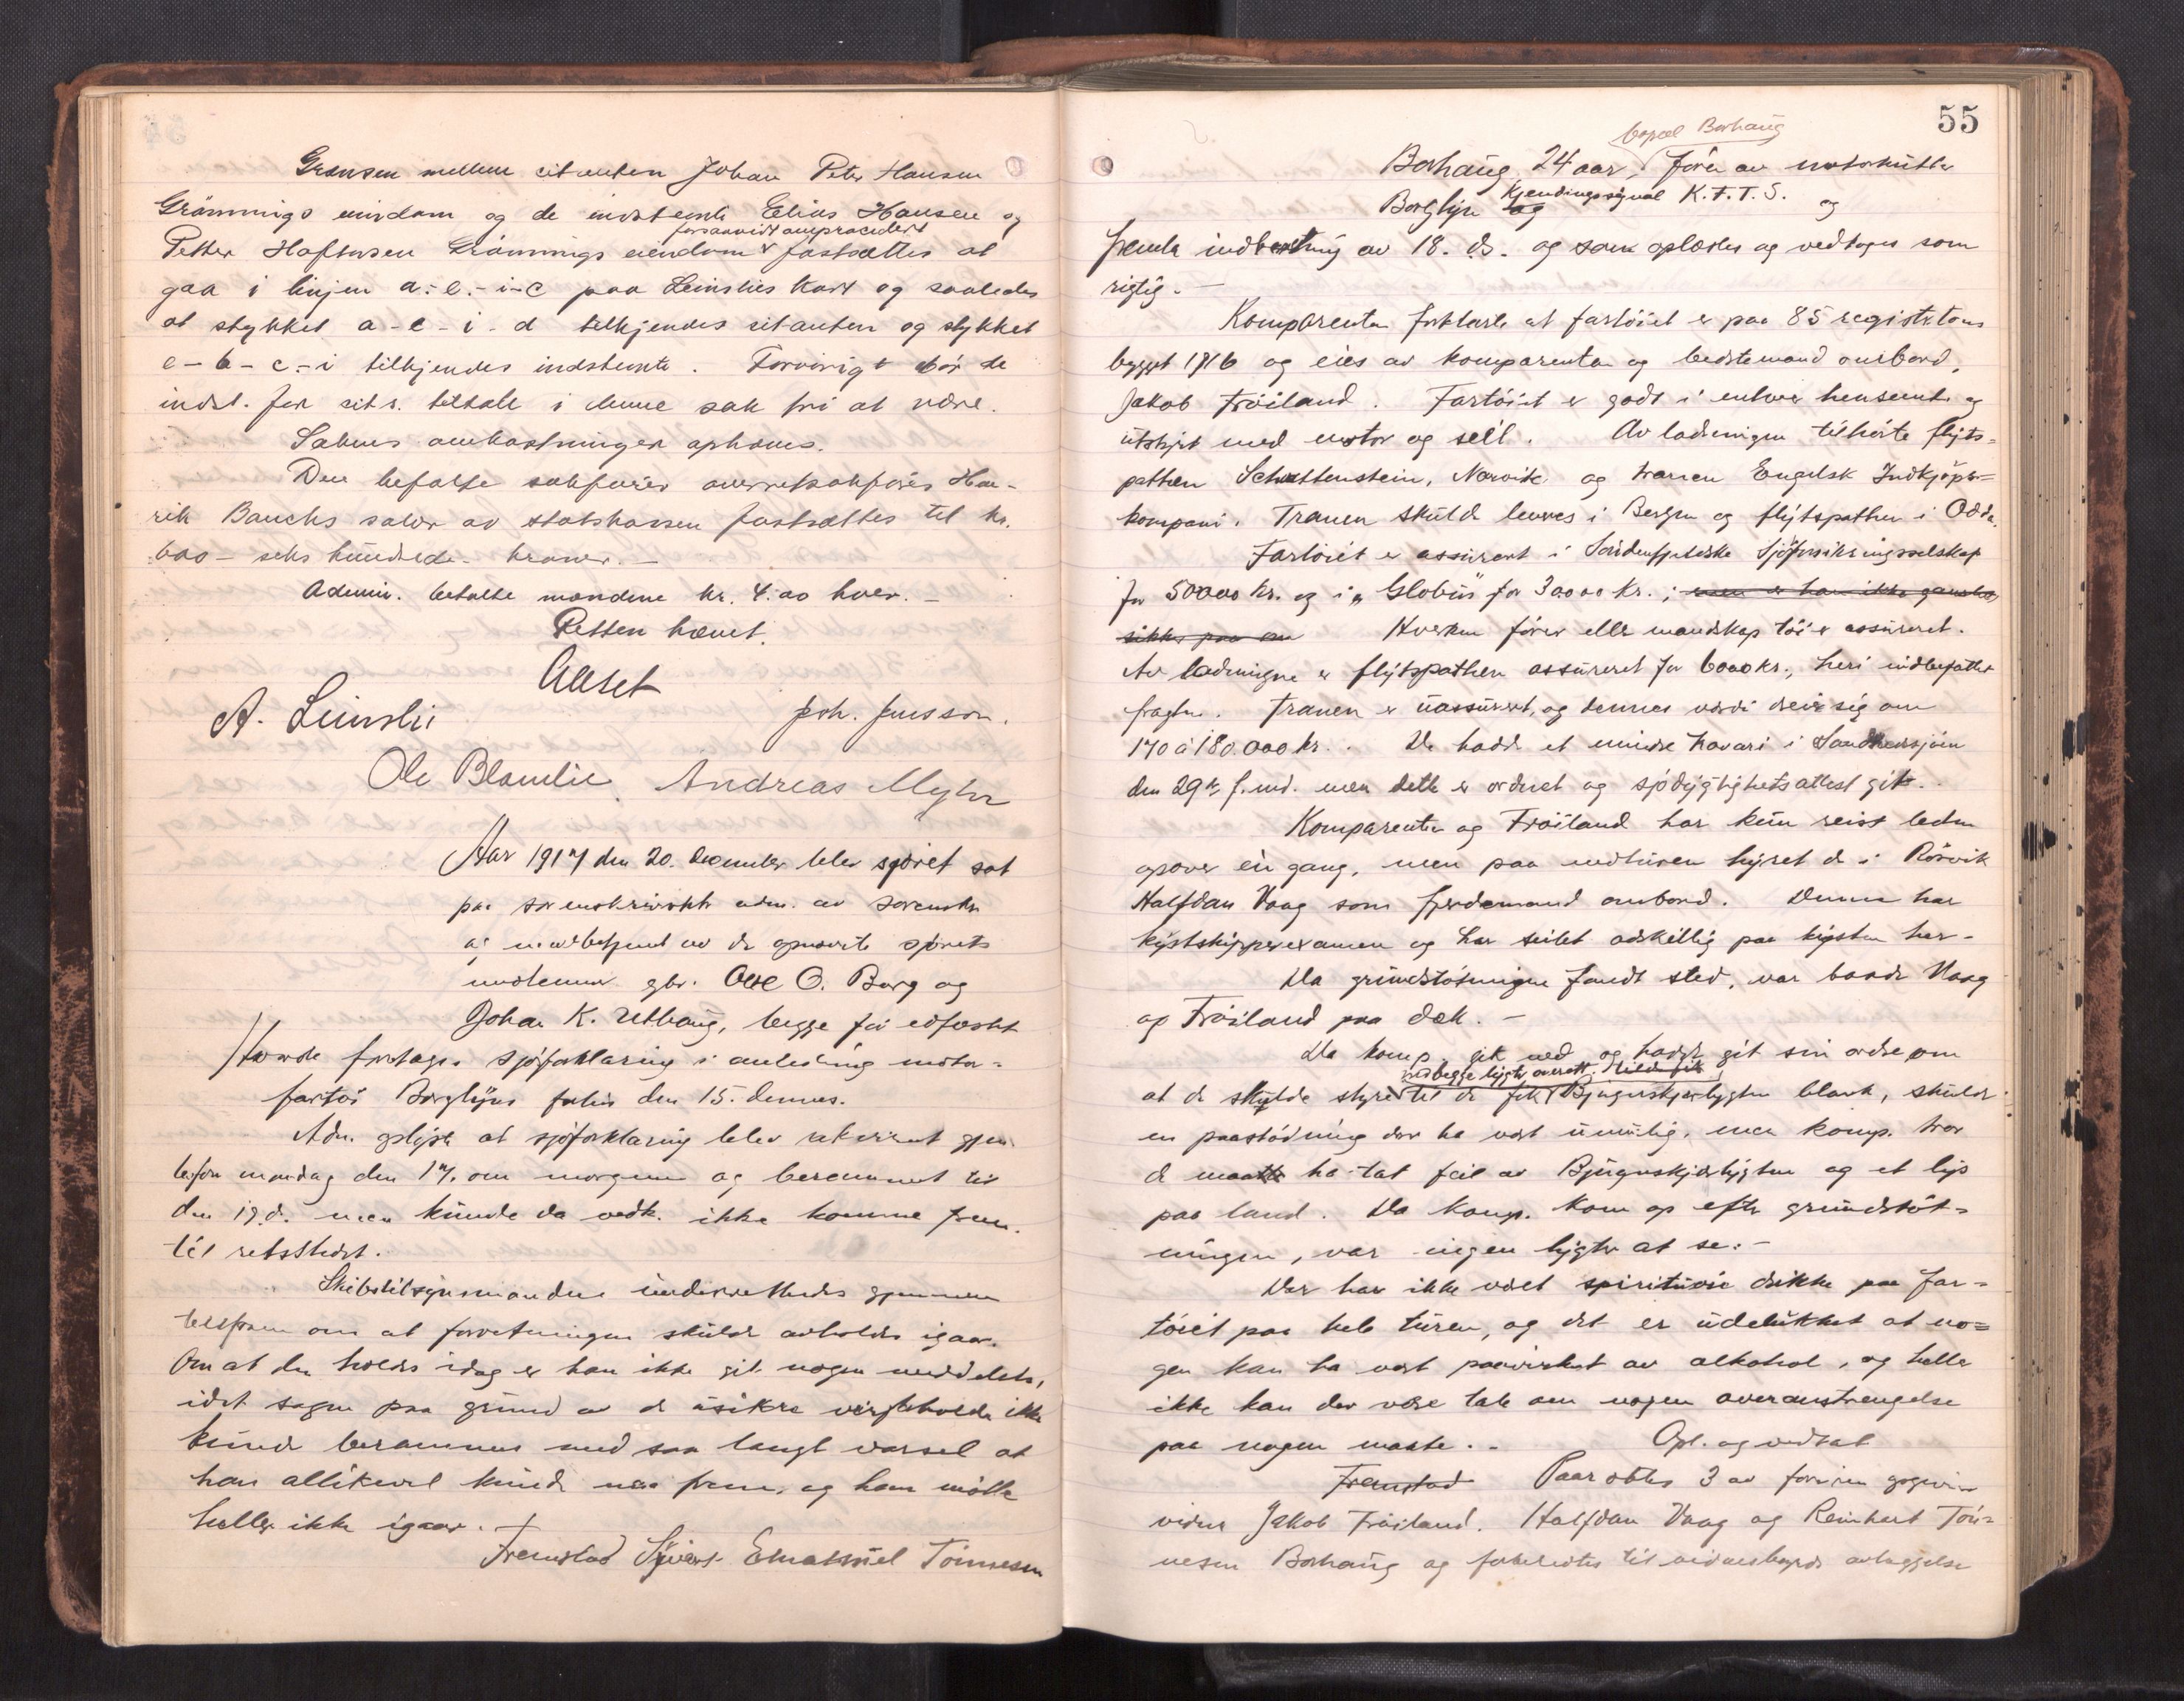 Grænsen mellem citanten Johan Peter Hansen
Grønnings eiendom og de indstevnte Elias Hansen og
forsaavidt omprocedert
Petter Haftorsen Grønnings eiendom fastsættes at
gaa i linjen a-e-i-c paa Leinslies kart og saaledes
at stykket a-e-i-d tilkjendes citanten og stykket
e-b-c-i tilkjendes indstevnte. Forøvrigt bør de
indst. for cit.s. tiltale i denne sak fri at være.
Sakens omkostninger ophæves.
Den befalte sakfører overretssakfører Hen-
rik Bauchs salær av statskassen fastsættes til kr.
600 – seks hundrede – kroner. –
Admin. betalte mændene kr. 4.00 hver. –
Retten hævet.
Alset
A. Leinslie Joh. Jensson.
Ole Blomlie. Andreas Myhr
Aar 1917 den 20. december blev sjøret sat
paa sorenskriverkt. adm. av sorenskr.
og medbetjent av de opnævnte sjørets
medlemmer gbr. Ole O. Borg og
Johan K. Uthaug, begge før edfæstet
Hvorda foretages sjøforklaring i anledning motor-
fartøi Borglyns forlis den 15. dennes.
Adm. oplyste at sjøforklaring blev rekvirert gjen.
telefon mandag den 17. om morgenen og berammet til
den 19. ds. men kunde da vedk. ikke komme frem
til retsstedet.
Skibstilsynsmanden underrettedes gjennem
telefonen om at forretningen skulde avholdes igaar.
Om at den holdes idag er han ikke git nogen meddelelse,
idet sagen paa grund av de usikre veirforholde ikke
kunde berammes med saa langt varsel at
han allikevel kunde naa frem, og han møtte
heller ikke igaar.
Fremstod Sivert Emanuel Tønnesen
55
kaptl Borhaug
Borhaug, 24 aar, fører av motorkutter
Borglyn og Kjendingssignal K.F.T.S. og
fremla indberetning av 18. ds. og som oplæstes og vedtoges som
rigtig. –
Komparenten forklarte at fartøiet er paa 85 registertons
bygget 1916 og eies av komparenten og bedstemand ombord,
Jakob Frøiland. Fartøiet er godt i enhver henseende og
utstyrt med motor og seil. Av ladningen tilhørte flyts-
pathen Schattenstein, Narvik og tranen Engelsk Indkjøps-
kompani. Tranen skulde leveres i Bergen og flytspathen i Odda.
Fartøiet er assurert i Søndenfjeldske Sjøforsikringsselskap
for 50000 kr. og i "Globus" for 30000 kr.; men er han ikke ganske
sikker paa om Hverken fører eller mandskap tøi er assureret.
Av ladningen er flytspathen assureret for 6000 kr., heri indbefattet
fragten. Tranen er uassurert, og dennes værdi dreier sig om
170 à 180.000 kr. De hadde et mindre havari i Sandnessjøen
den 29de f.md. men dette er ordnet og sjødygtighetsattest git.
Komparenten og Frøiland har kun reist leden
opover én gang, men paa nedturen hyret de i Rørvik
Halfdan Vaag som styrdemand ombord. Denne har
kystskipperexamen og har seilet adskillig paa kysten her-
Da grundstøtningen fandt sted, var baade Vaag
og Frøiland paa dæk. –
Da komp. gik ned og hadde git sin ordre om
med begge lygter overett.
at de skulde styre til de fik Bjugnskjærlygten blank, skulde
en paastødning der ha vært umulig, men komp. tror
de maatte ha tat feil av Bjugnskjærlygten og et lys
paa land. Da komp. kom op efter grundstøt-
ningen, var ingen lygter at se. –
Der har ikke været spirituøse drikke paa far-
tøiet paa hele turen, og det er udelukket at no-
gen kan ha vært paavirket av alkohol, og heller
ikke kan der være tale om nogen overanstrengelse
paa nogen maate. – Opl. og vedtat
Fremstod Paaraabtes 3 av føreren opgivne
vidner Jakob Frøiland. Halfdan Vaag og Reinhert Tøn-
nesen Borhaug og forberedtes til vidnesbyrds avlæggelse